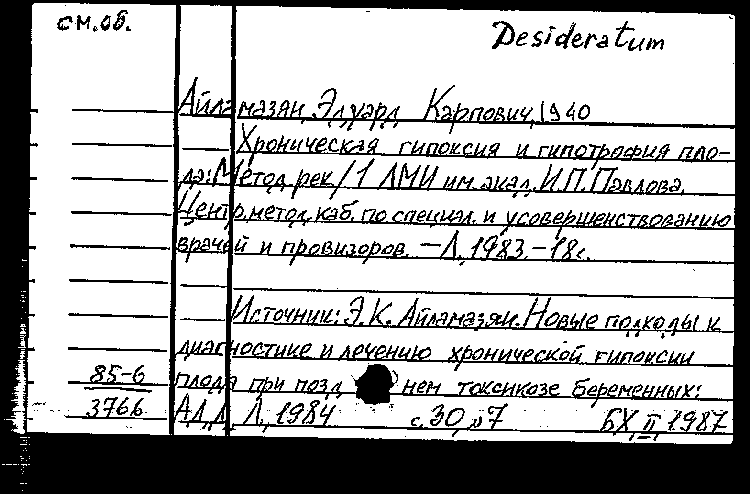 см.об.
Desideratum
Айламазян, Эдуард Карпович, 1940
Хроническая гипоксия и гипотрофия пло-
да: Метод. рек. / 1 ЛМИ им. акад. И.П. Павлова.
Центр. метод. каб. по специал. и усовершенствованию
врачей и провизоров. — Л., 1983. — 18 с.
Источник: Э.К. Айламазян. Новые подходы к
диагностике и лечению хронической гипоксии
85-6 плода при позд нем токсикозе беременных:
3766 Л., 1984 с. 30, №7 БХ II 1987